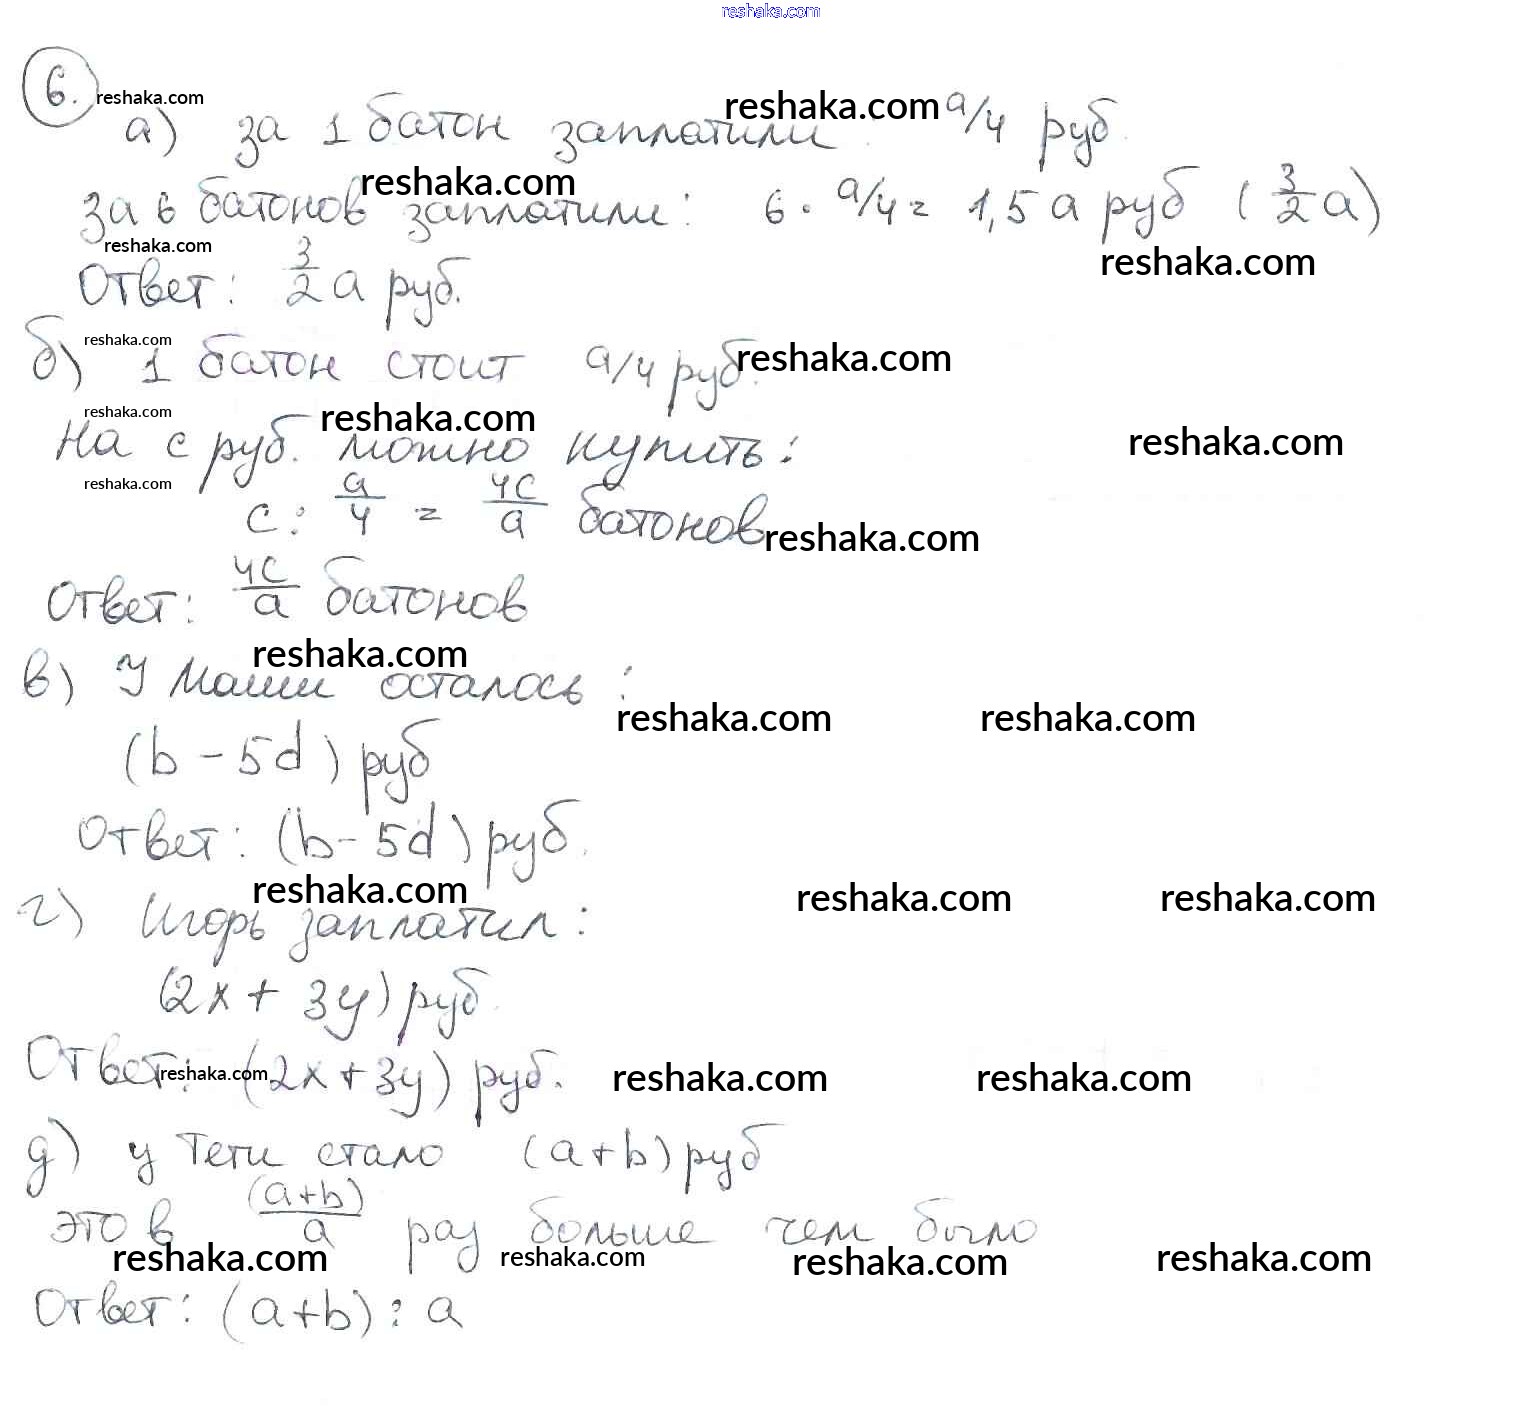 reshaka.com
6. reshaka.com
а) за 1 батон заплатили reshaka.com a/4 руб.
за 6 батонов reshaka.com заплатили: 6 · a/4 = 1,5 a руб (3/2 a)
reshaka.com reshaka.com
Ответ: 3/2 a руб.
б) reshaka.com 1 батон стоит a/4 руб. reshaka.com
reshaka.com reshaka.com reshaka.com
На c руб. можно купить:
reshaka.com
c : a/4 = 4c/a батонов reshaka.com
Ответ: 4c/a батонов
reshaka.com
в) У Маши осталось:
reshaka.com reshaka.com
(b - 5d) руб
Ответ: (b - 5d) руб.
reshaka.com reshaka.com reshaka.com
г) Игорь заплатил:
(2x + 3y) руб.
Ответ: reshaka.com (2x + 3y) руб. reshaka.com reshaka.com
д) у Тети стало (a+b) руб
это в (a+b)/a раз больше чем было
reshaka.com reshaka.com reshaka.com reshaka.com
Ответ: (a+b) : a